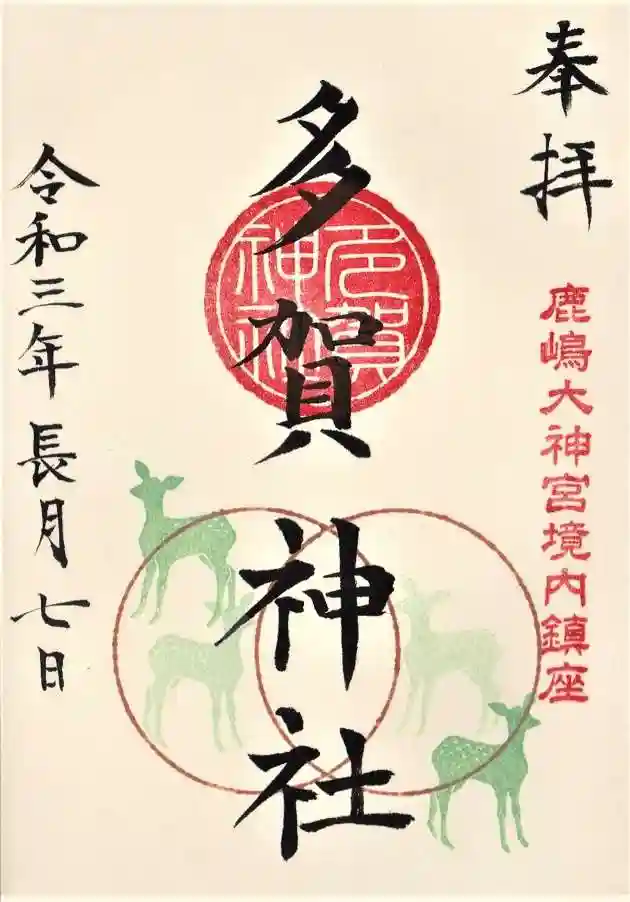 奉拝
鹿嶋大神宮境内鎮座
多賀神社
多賀神社
令和三年長月七日